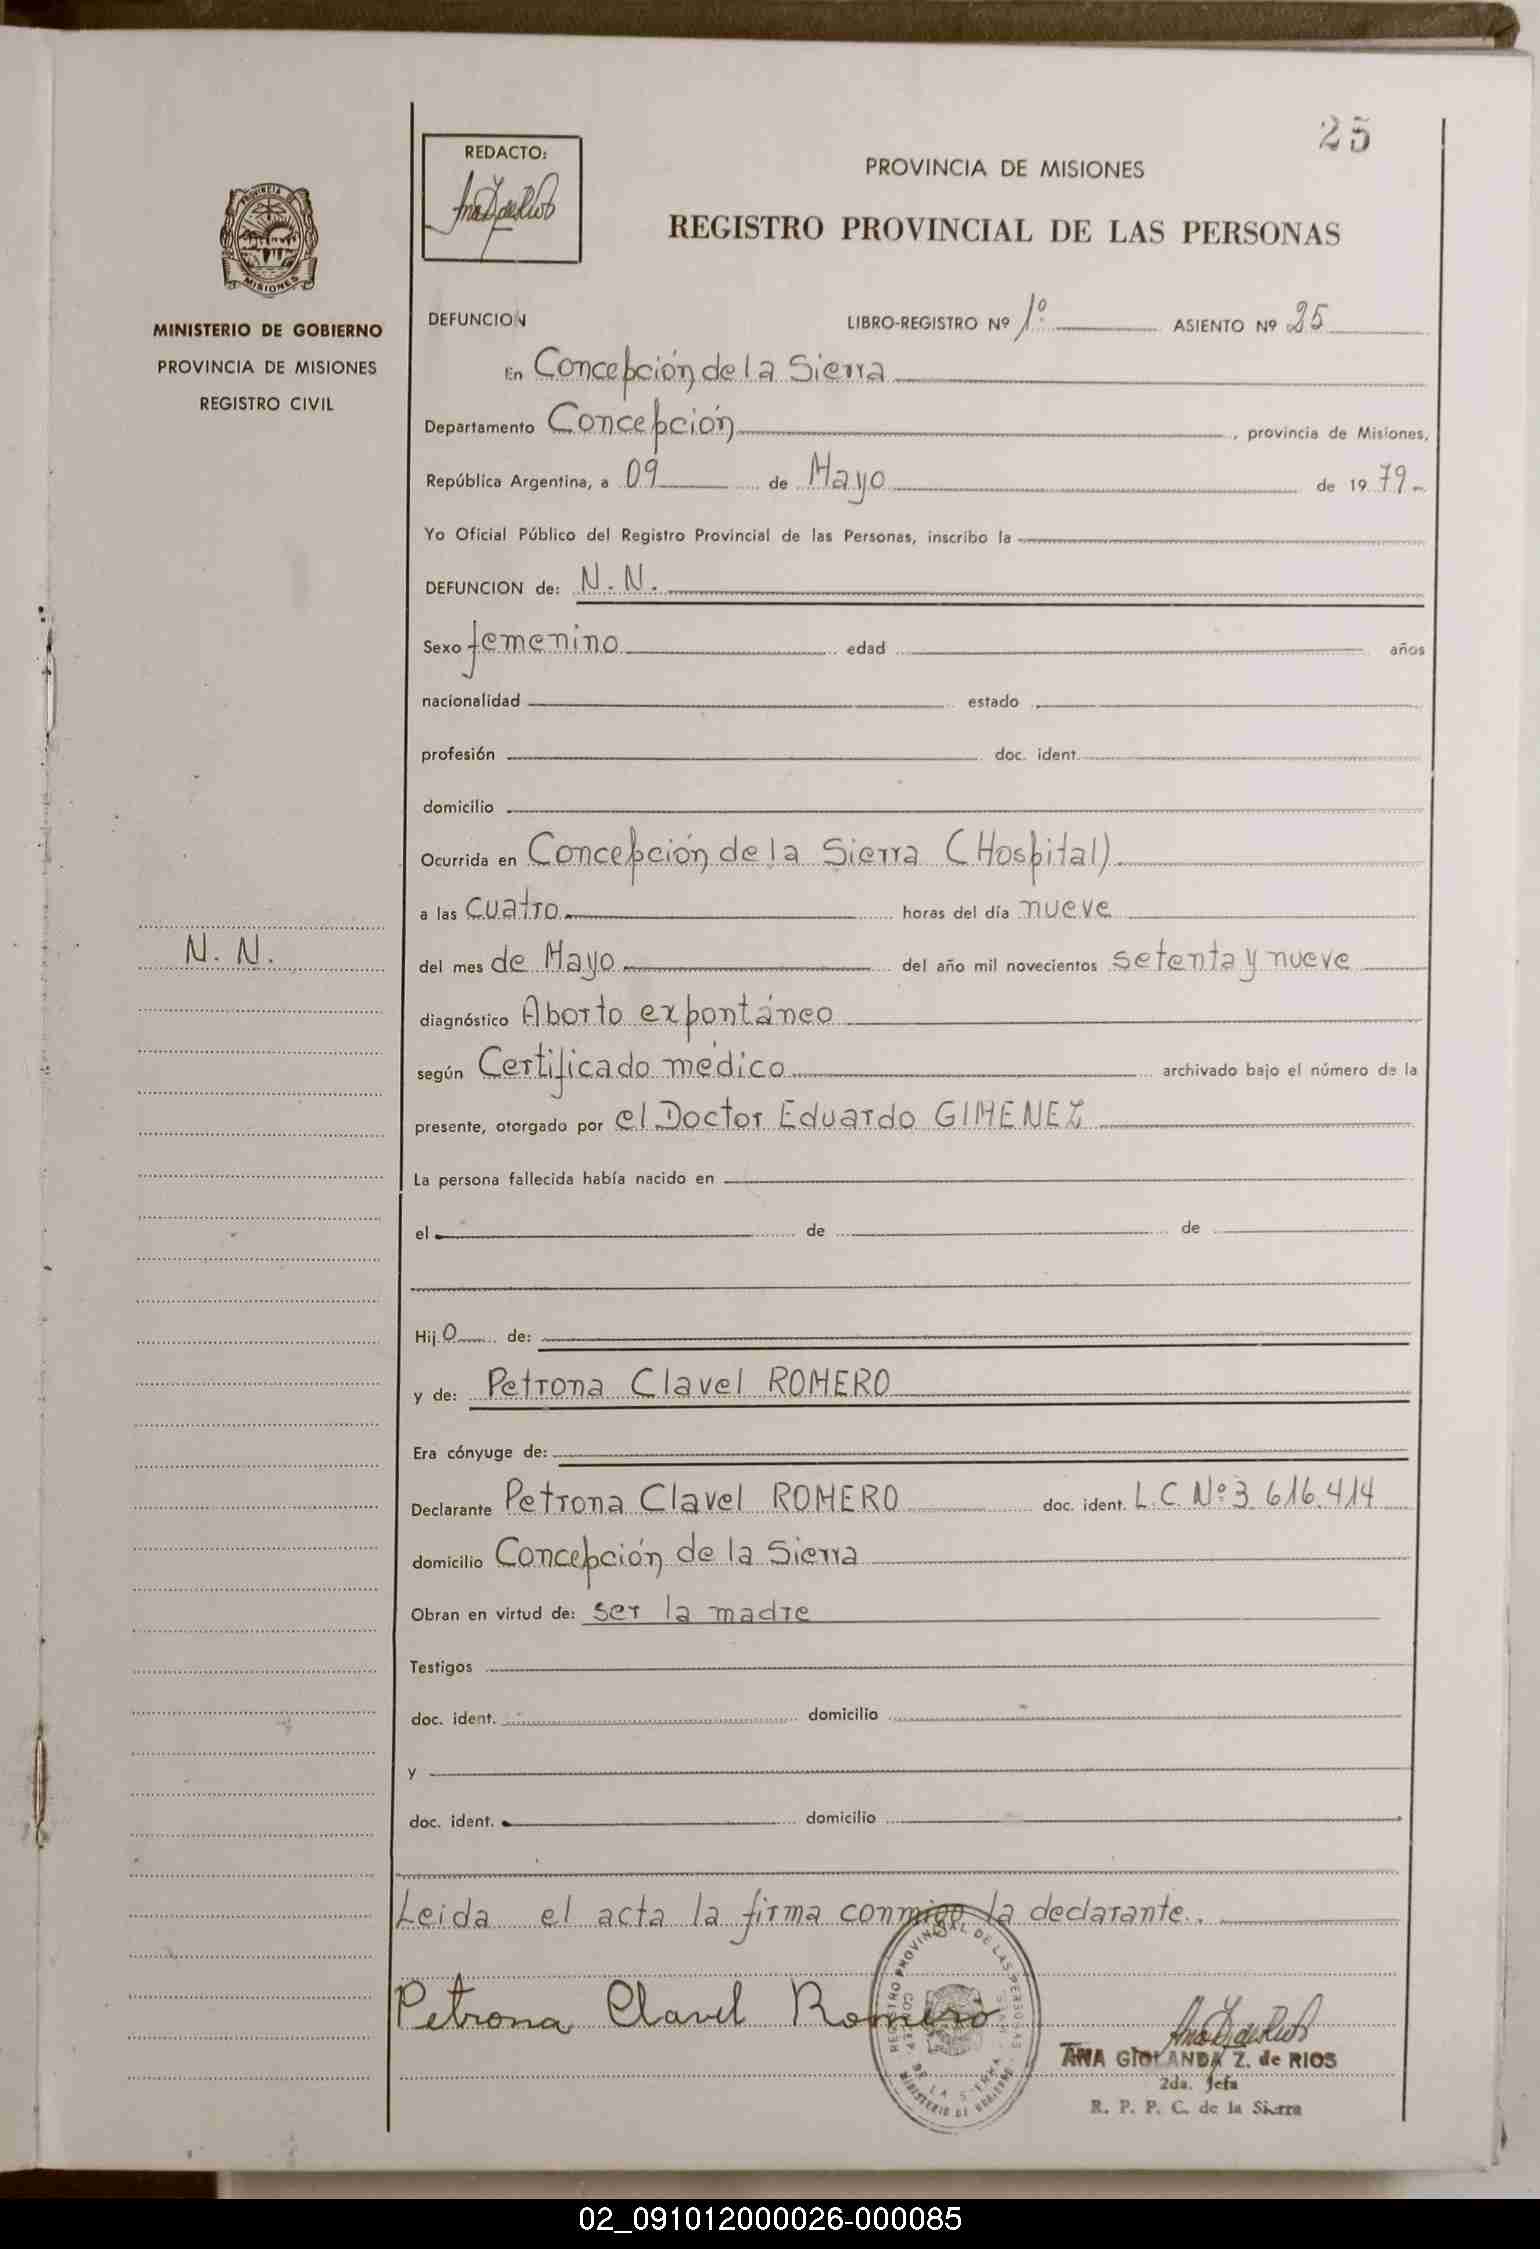 25
REDACTO:
PROVINCIA DE MISIONES
REGISTRO PROVINCIAL DE LAS PERSONAS
PROVINCIA DE
MISIONES
MINISTERIO DE GOBIERNO
PROVINCIA DE MISIONES
REGISTRO CIVIL
DEFUNCION LIBRO-REGISTRO Nº 1º ASIENTO Nº 25
En Concepción de la Sierra
Departamento Concepción, provincia de Misiones,
República Argentina, a 09 de Mayo de 1979.-
Yo Oficial Público del Registro Provincial de las Personas, inscribo la
DEFUNCION de: N. N.
Sexo femenino edad años
nacionalidad estado
profesión doc. ident.
domicilio
Ocurrida en Concepción de la Sierra (Hospital)
a las cuatro horas del día nueve
N. N.
del mes de Mayo del año mil novecientos setenta y nueve
diagnóstico Aborto expontáneo
según Certificado médico archivado bajo el número de la
presente, otorgado por el Doctor Eduardo GIMENEZ
La persona fallecida había nacido en
el de de
Hijo de:
y de: Petrona Clavel ROMERO
Era cónyuge de:
Declarante Petrona Clavel ROMERO doc. ident. L.C. Nº 3.616.414
domicilio Concepción de la Sierra
Obran en virtud de: ser la madre
Testigos
doc. ident. domicilio
y
doc. ident. domicilio
Leida el acta la firma conmigo la declarante.
Petrona Clavel Romero
REGISTRO PROVINCIAL DE LAS PERSONAS
DE LA SIERRA
MINISTERIO DE GOBIERNO
ANA GIOLANDA Z. de RIOS
2da. Jefa
R. P. P. C. de la Sierra
02_091012000026-000085